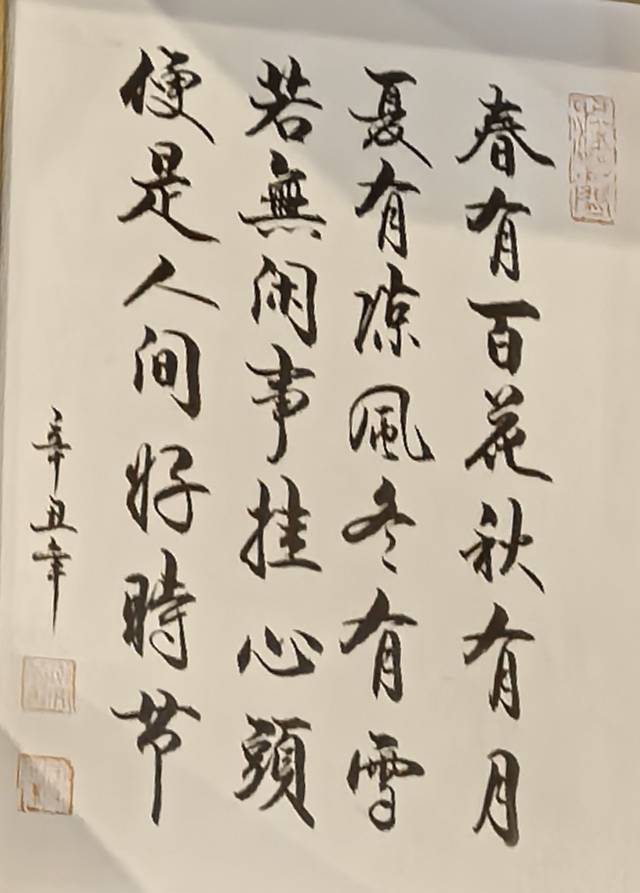 春有百花秋有月
夏有凉風冬有雪
若無闲事挂心頭
便是人间好時节
辛丑年